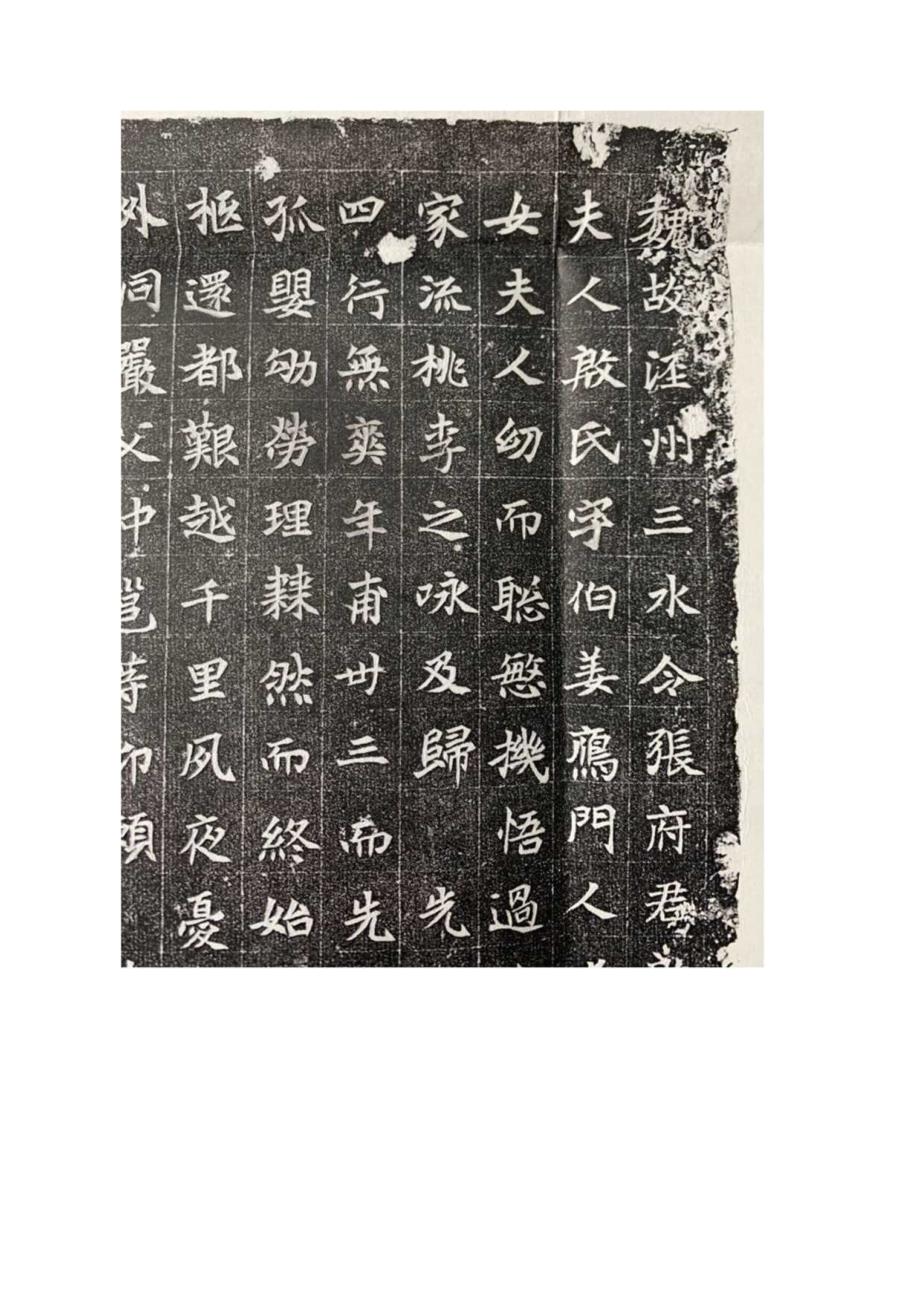 魏故涇州三水令張府君
夫人啟氏字伯姜鴈門人
女夫人幼而聡慜機悟過
家流桃李之咏及歸 先
四行無爽年甫丗三而先
孤嬰幼勞理棘然而終始
柩還都艱越千里夙夜憂
外同嚴父中